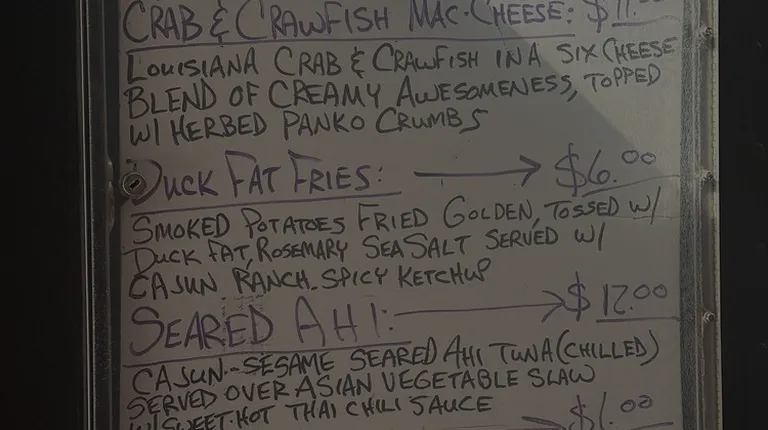 CRAB & CRAWFISH MAC-CHEESE: $11.00
LOUISIANA CRAB & CRAWFISH IN A SIX CHEESE
BLEND OF CREAMY AWESOMENESS, TOPPED
W/ HERBED PANKO CRUMBS
DUCK FAT FRIES: $6.00
SMOKED POTATOES FRIED GOLDEN, TOSSED W/
DUCK FAT, ROSEMARY SEA SALT SERVED W/
CAJUN RANCH. SPICY KETCHUP
SEARED AHI: $12.00
CAJUN-SESAME SEARED AHI TUNA (CHILLED)
SERVED OVER ASIAN VEGETABLE SLAW
W/ SWEET-HOT THAI CHILI SAUCE